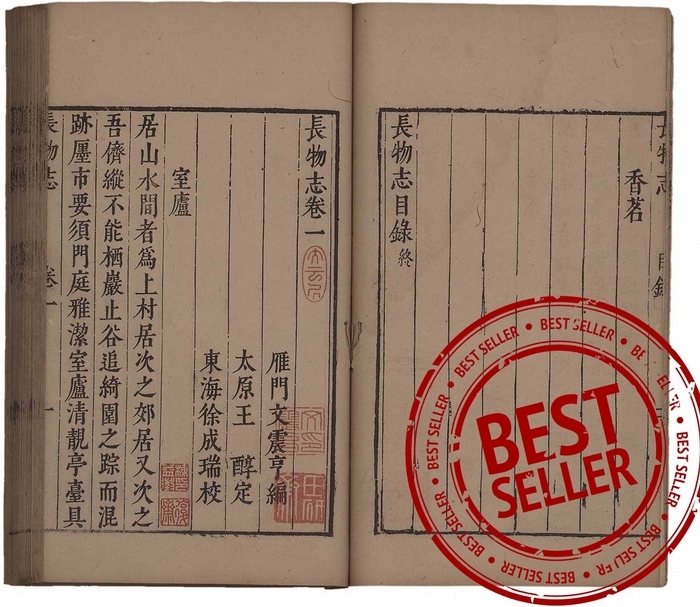 長物志
香茗
目錄
長物志目錄終
長物志卷一
雁門文震亨編
太原王醇定
東海徐成瑞校
室廬
居山水間者為上村居次之郊居又次之
吾儕縱不能栖巖止谷追綺園之踪而混
跡廛市要須門庭雅潔室廬清靚亭臺具
長物志
卷一
一
BEST SELLER
BEST SELLER • BEST SELLER • BEST SELLER • BEST SELLER • BEST SELLER • BEST SELLER • BEST SELLER